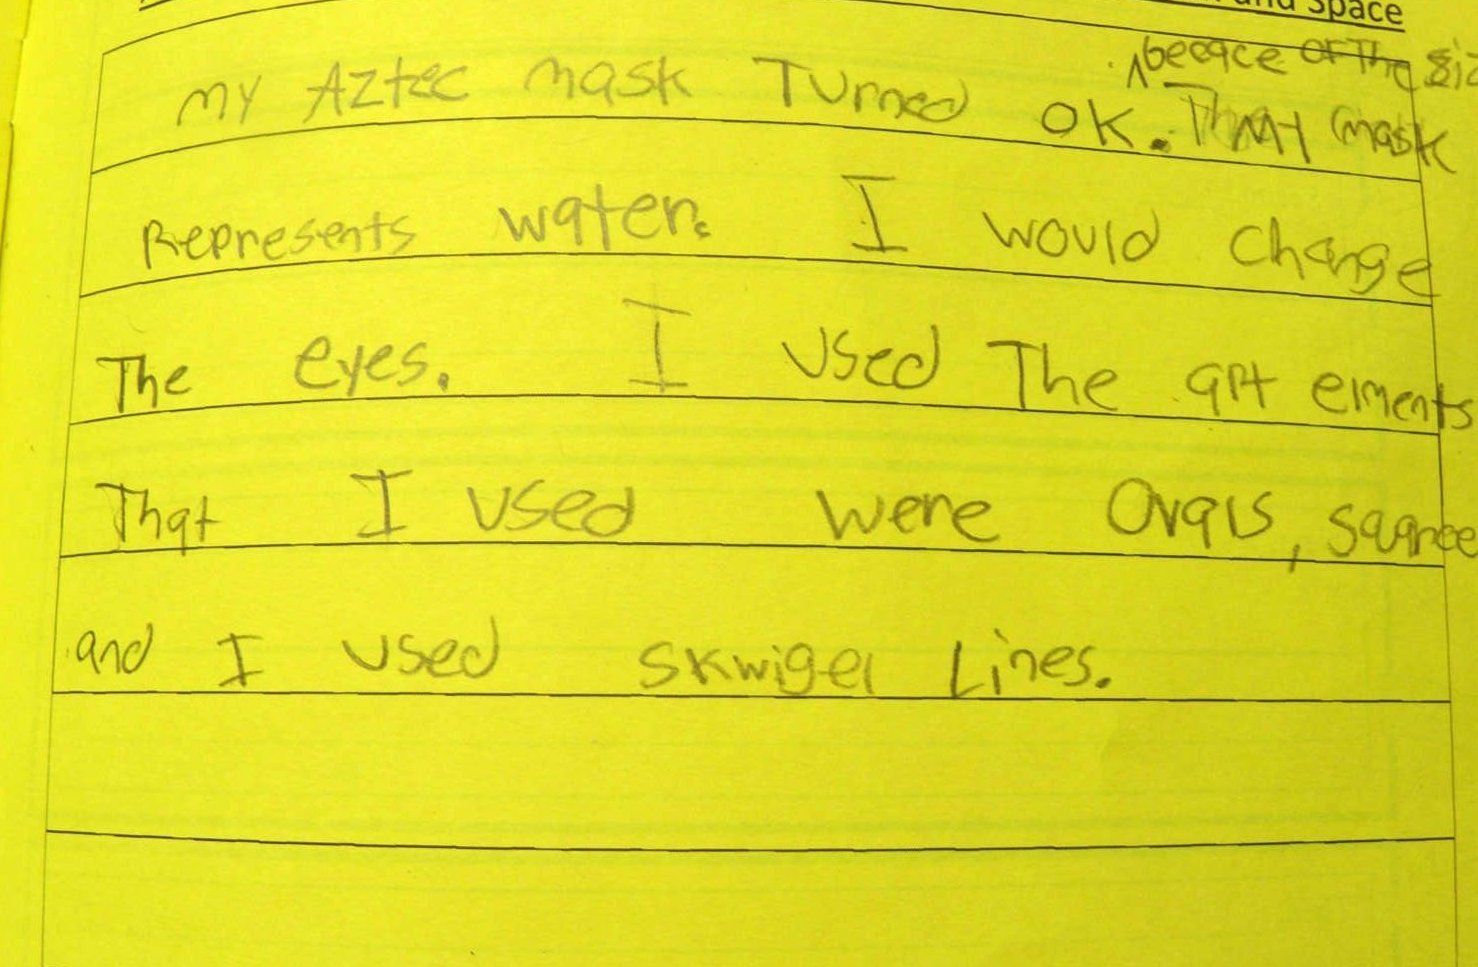 and Space
becace of The
My Aztec mask Turned OK. My mask
Represents water. I would change
The eyes. I used The art elments
That I used were Ovals, sqaree
and I used skwigel Lines.